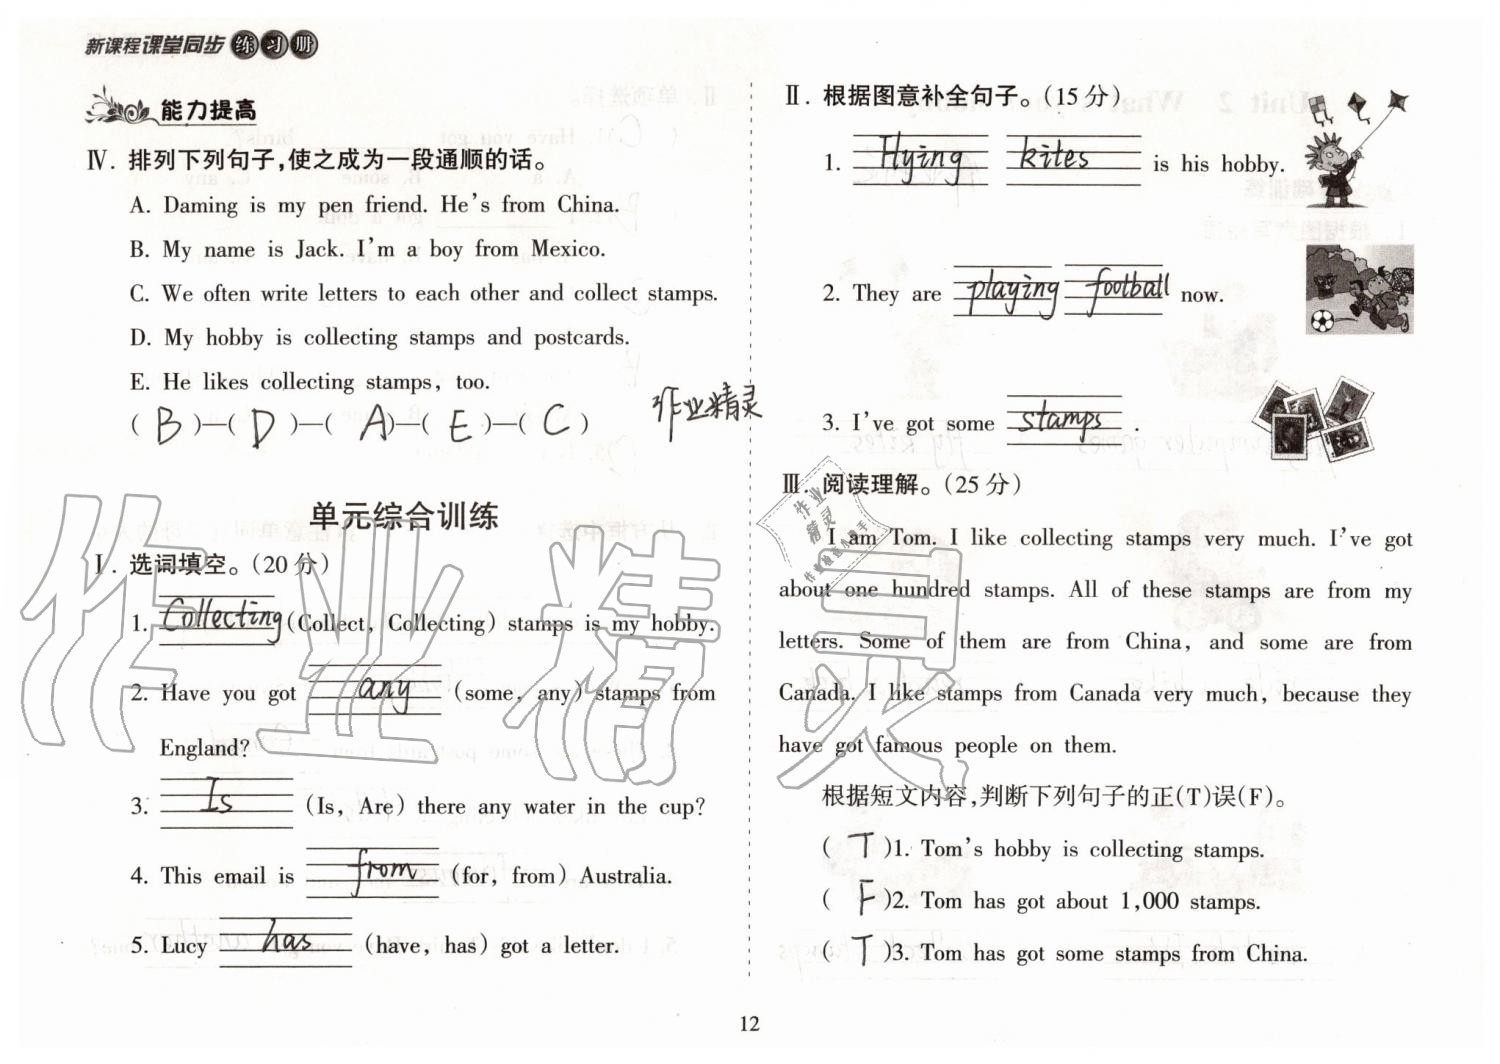 新课程课堂同步练习册
能力提高
Ⅳ. 排列下列句子,使之成为一段通顺的话。
A. Daming is my pen friend. He's from China.
B. My name is Jack. I'm a boy from Mexico.
C. We often write letters to each other and collect stamps.
D. My hobby is collecting stamps and postcards.
E. He likes collecting stamps, too.
( B )—( D )—( A )—( E )—( C )
作业精灵
单元综合训练
Ⅰ. 选词填空。(20分)
1. Collecting (Collect, Collecting) stamps is my hobby.
2. Have you got any (some, any) stamps from
England?
3. Is (Is, Are) there any water in the cup?
4. This email is from (for, from) Australia.
5. Lucy has (have, has) got a letter.
Ⅱ. 根据图意补全句子。(15分)
1. Flying kites is his hobby.
2. They are playing football now.
3. I've got some stamps .
Ⅲ. 阅读理解。(25分)
I am Tom. I like collecting stamps very much. I've got
about one hundred stamps. All of these stamps are from my
letters. Some of them are from China, and some are from
Canada. I like stamps from Canada very much, because they
have got famous people on them.
根据短文内容,判断下列句子的正(T)误(F)。
( T )1. Tom's hobby is collecting stamps.
( F )2. Tom has got about 1,000 stamps.
( T )3. Tom has got some stamps from China.
12
作业精灵
作业
精灵